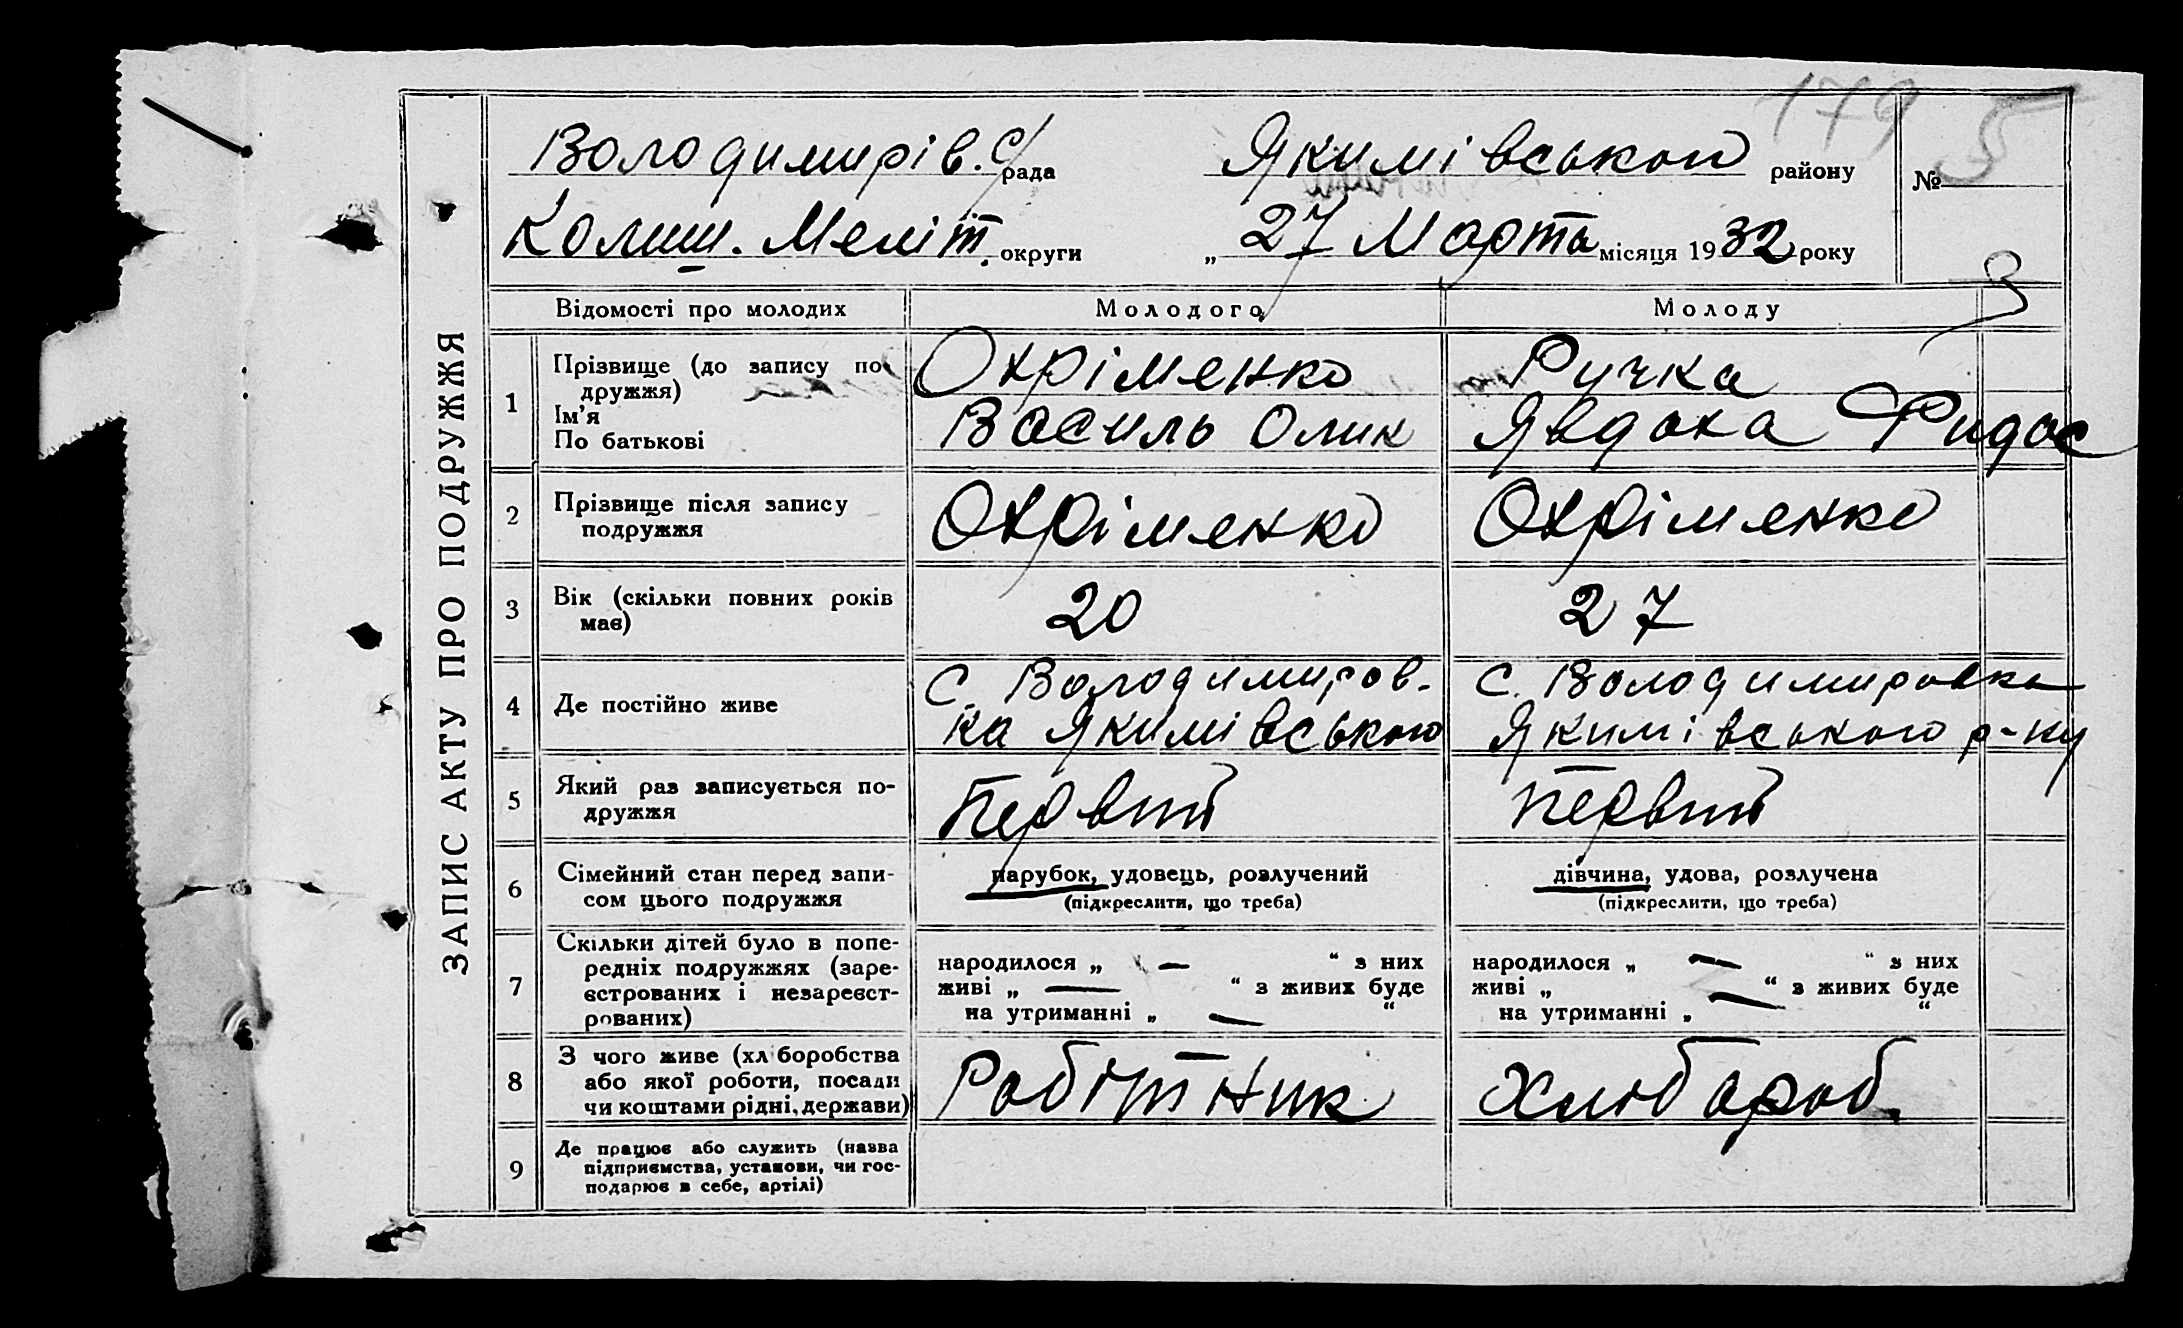 179
Володимирів. с/рада Якимівського району № 5
Колиш. Меліт. округи „ 27 Марта місяця 1932 року
3
ЗАПИС АКТУ ПРО ПОДРУЖЖЯ
Відомості про молодих Молодого Молоду
1 Прізвище (до запису по-
дружжя)
Ім'я
По батькові
Охріменко Ручка
Василь Олик Явдоха Фидос
2 Прізвище після запису
подружжя
Охріменко Охріменко
3 Вік (скільки повних років
має)
20 27
4 Де постійно живе
с. Володимиров-
ка Якимівського
с. Володимировка
Якимівського р-ну
5 Який раз записується по-
дружжя
Первий Первий
6 Сімейний стан перед запи-
сом цього подружжя
парубок, удовець, розлучений
(підкреслити, що треба)
дівчина, удова, розлучена
(підкреслити, що треба)
7 Скільки дітей було в попе-
редніх подружжях (заре-
єстрованих і незареєст-
рованих)
народилося „ — “ з них
живі „ — “ з живих буде
на утриманні „ — “
народилося „ — “ з них
живі „ — “ з живих буде
на утриманні „ “
8 З чого живе (хліборобства
або якої роботи, посади
чи коштами рідні, держави)
Робітник Хлібороб.
9 Де працює або служить (назва
підприємства, установи, чи гос-
подарює в себе, артілі)